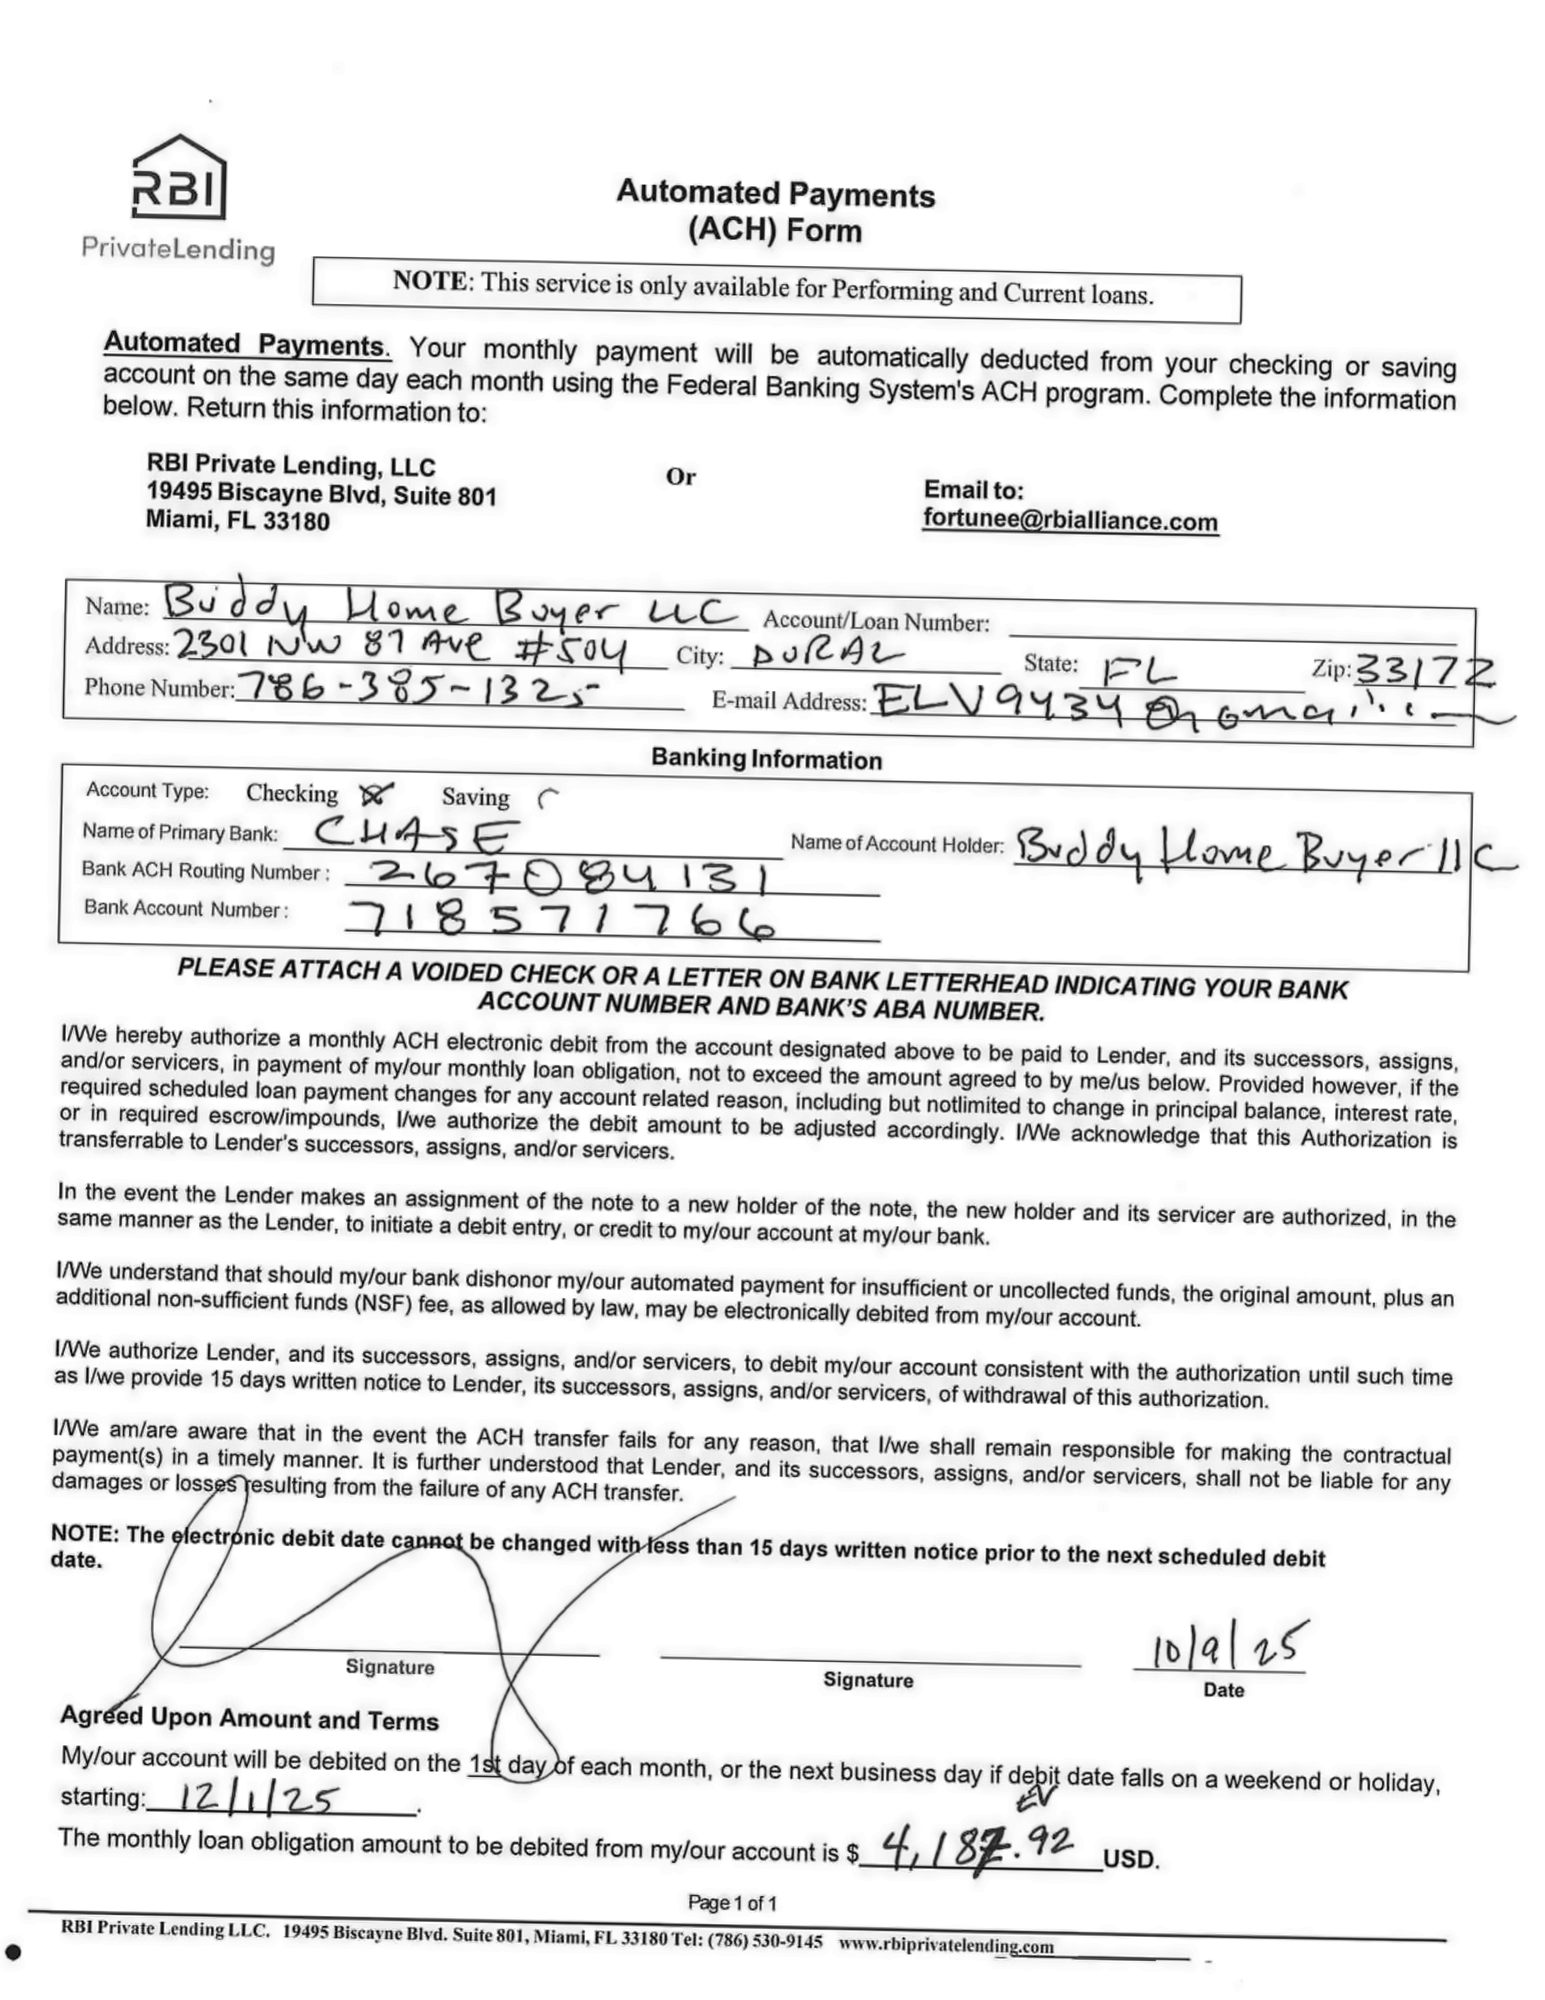 RBI
PrivateLending
Automated Payments
(ACH) Form
NOTE: This service is only available for Performing and Current loans.
Automated Payments. Your monthly payment will be automatically deducted from your checking or saving
account on the same day each month using the Federal Banking System's ACH program. Complete the information
below. Return this information to:
RBI Private Lending, LLC
19495 Biscayne Blvd, Suite 801
Miami, FL 33180
Or
Email to:
fortunee@rbialliance.com
Name: Buddy Home Buyer LLC Account/Loan Number:
Address: 2301 NW 87 Ave #504 City: DORAL State: FL Zip: 33172
Phone Number: 786-385-1325 E-mail Address: ELV9434@
Banking Information
Account Type: Checking Saving
Name of Primary Bank: CHASE Name of Account Holder: Buddy Home Buyer llC
Bank ACH Routing Number : 267084131
Bank Account Number : 718571766
PLEASE ATTACH A VOIDED CHECK OR A LETTER ON BANK LETTERHEAD INDICATING YOUR BANK
ACCOUNT NUMBER AND BANK'S ABA NUMBER.
I/We hereby authorize a monthly ACH electronic debit from the account designated above to be paid to Lender, and its successors, assigns,
and/or servicers, in payment of my/our monthly loan obligation, not to exceed the amount agreed to by me/us below. Provided however, if the
required scheduled loan payment changes for any account related reason, including but notlimited to change in principal balance, interest rate,
or in required escrow/impounds, I/we authorize the debit amount to be adjusted accordingly. I/We acknowledge that this Authorization is
transferrable to Lender's successors, assigns, and/or servicers.
In the event the Lender makes an assignment of the note to a new holder of the note, the new holder and its servicer are authorized, in the
same manner as the Lender, to initiate a debit entry, or credit to my/our account at my/our bank.
I/We understand that should my/our bank dishonor my/our automated payment for insufficient or uncollected funds, the original amount, plus an
additional non-sufficient funds (NSF) fee, as allowed by law, may be electronically debited from my/our account.
I/We authorize Lender, and its successors, assigns, and/or servicers, to debit my/our account consistent with the authorization until such time
as I/we provide 15 days written notice to Lender, its successors, assigns, and/or servicers, of withdrawal of this authorization.
I/We am/are aware that in the event the ACH transfer fails for any reason, that I/we shall remain responsible for making the contractual
payment(s) in a timely manner. It is further understood that Lender, and its successors, assigns, and/or servicers, shall not be liable for any
damages or losses resulting from the failure of any ACH transfer.
NOTE: The electronic debit date cannot be changed with less than 15 days written notice prior to the next scheduled debit
date.
10/9/25
Signature Signature Date
Agreed Upon Amount and Terms
My/our account will be debited on the 1st day of each month, or the next business day if debit date falls on a weekend or holiday,
starting: 12/1/25.
EV
The monthly loan obligation amount to be debited from my/our account is $ USD.
Page 1 of 1
RBI Private Lending LLC. 19495 Biscayne Blvd. Suite 801, Miami, FL 33180 Tel: (786) 530-9145 www.rbiprivatelending.com